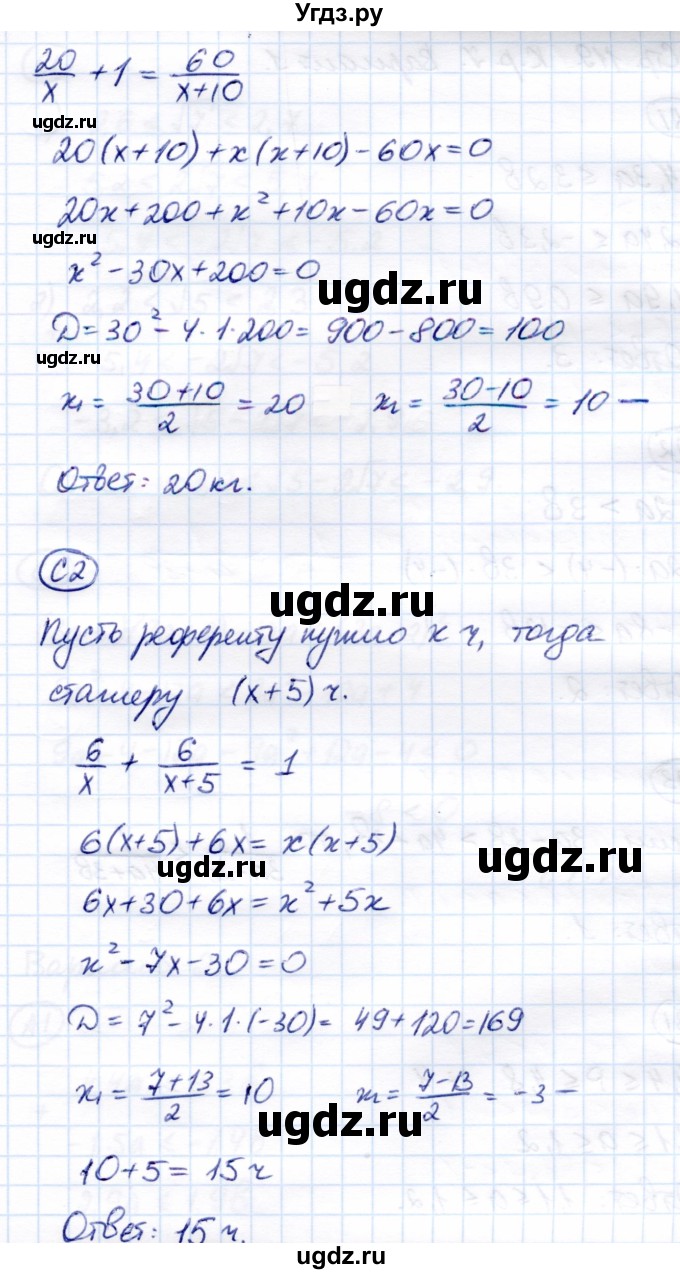 Угдз.ру
20/x + 1 = 60/(x+10)
ugdz.ru
20(x+10) + x(x+10) - 60x = 0
20x + 200 + x² + 10x - 60x = 0
ugdz.ru
x² - 30x + 200 = 0
ugdz.ru
D = 30² - 4·1·200 = 900 - 800 = 100
ugdz.ru
x₁ = (30+10)/2 = 20 x₂ = (30-10)/2 = 10 —
Ответ: 20 кг.
С2
ugdz.ru
Пусть референту нужно x ч, тогда
стажеру (x+5) ч.
6/x + 6/(x+5) = 1
6(x+5) + 6x = x(x+5)
ugdz.ru
ugdz.ru
6x + 30 + 6x = x² + 5x
x² - 7x - 30 = 0
D = 7² - 4·1·(-30) = 49 + 120 = 169
x₁ = (7+13)/2 = 10 x₂ = (7-13)/2 = -3 —
ugdz.ru
10 + 5 = 15 ч
Ответ: 15 ч.
ugdz.ru